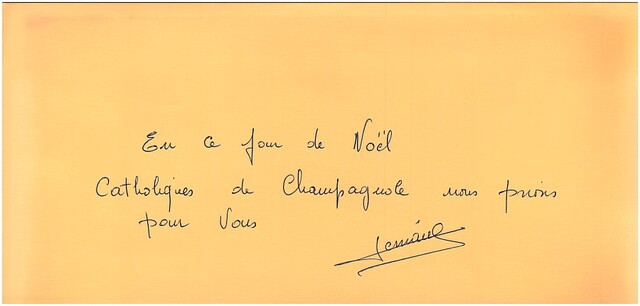 En ce jour de Noël
Catholiques de Champagnole nous prions
pour Vous